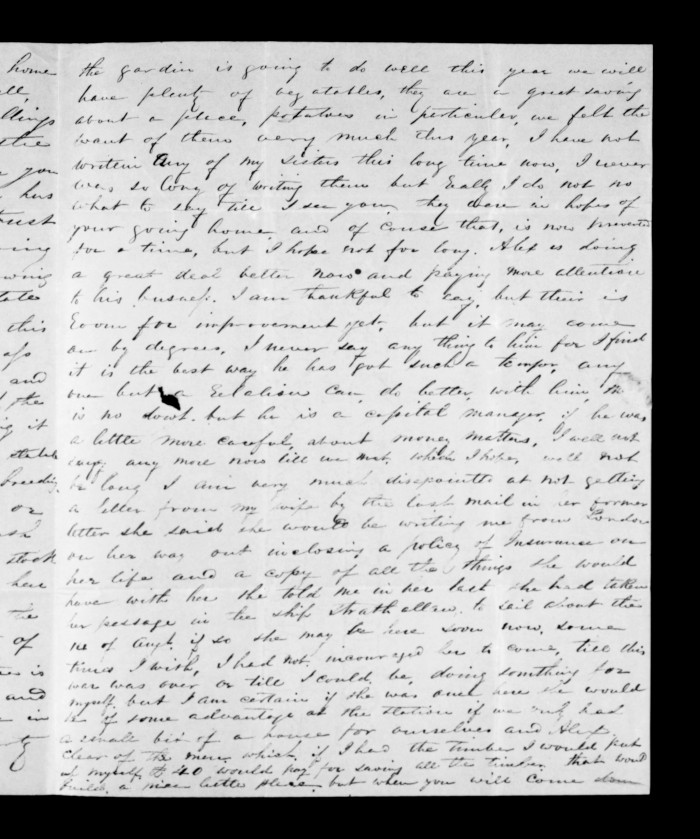 home
ell
the
you
has
trust
owing
tate
this
and
the
it
breeding
or
stock
here
the
of
and
in
the gardin is going to do well this year we will
have plenty of vegatables, they are a great saving
about a place, potatoes in perticular, we felt the
want of them verry much this year, I have not
wrotein any of my sisters this long time now, I never
was so long of writing them but Really I do not no
what to say till I see you, they were in hopes of
your going home and of couse that, is now prevented
for a time, but I hope not for long. Alex is doing
a great deal better now and paying more attention
to his busness. I am thankful to say, but their is
Room for improvement yet, but it may come
on by degrees, I never say any thing to him for I find
it is the best way he has got such a temper, any
one but a Relation can do better with him,
is no dowt. but he is a capital manager, if he was
a little more careful about money matters, I will not
any more now till we meet. which I hope, will not
be long I am very much disapointed at not getting
a letter from my wife by the last mail in her former
letter she said she would be writing me from London
on her way out inclosing a policy of Insurance on
her life and a copy of all the things she would
have with her she told me in her last she had taken
her passage in the ship Strathallan. to sail about the
of Augt. if so she may be here soon now, some
times I wish, I had not, incouraged her to come, till this
war was over or till I could be doing something for
myself but I am certain if she was once here she would
be of some advantage at the station if we only had
a small bit of a house for ourselves and Alex.
clear of the men, which if I had the timber I would put
up myself £40 would pay for sawing all the timber. that would
build a nice little place, but when you will come down